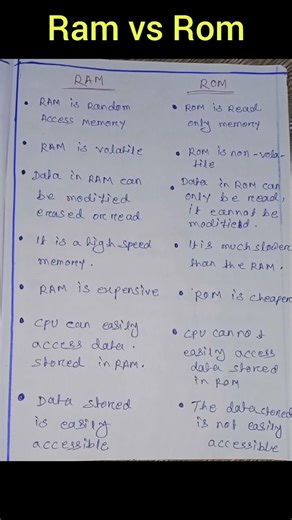 Ram vs Rom
RAM
ROM
• RAM is Random
Access Memory
• ROM is Read
only memory
• RAM is volatile
• ROM is non-vola-
tile
• Data in RAM can
be modified
erased or read
• Data in ROM can
only be read,
it cannot be
modified.
• It is a high-speed
memory.
• It is much slower
than the RAM.
• RAM is expensive
• ROM is cheaper
• CPU can easily
access data.
stored in RAM.
• CPU cannot
easily access
data stored
in ROM
• Data stored
is easily
accessible
• The data stored
is not easily
accessible